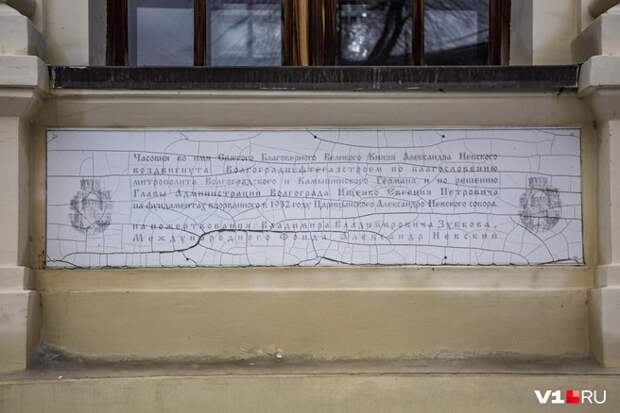 Часовня во имя Святого Благоверного Великого Князя Александра Невского
воздвигнута Волгограднефтегазстроем по благословению
митрополита Волгоградского и Камышинского Германа и по решению
Главы Администрации Волгограда Ищенко Евгения Петровича
на фундаментах взорванного в 1932 году Царицынского Александро Невского собора
на пожертвования: Владимира Владимировича Зубкова,
Международного Фонда Александр Невский
V1.RU